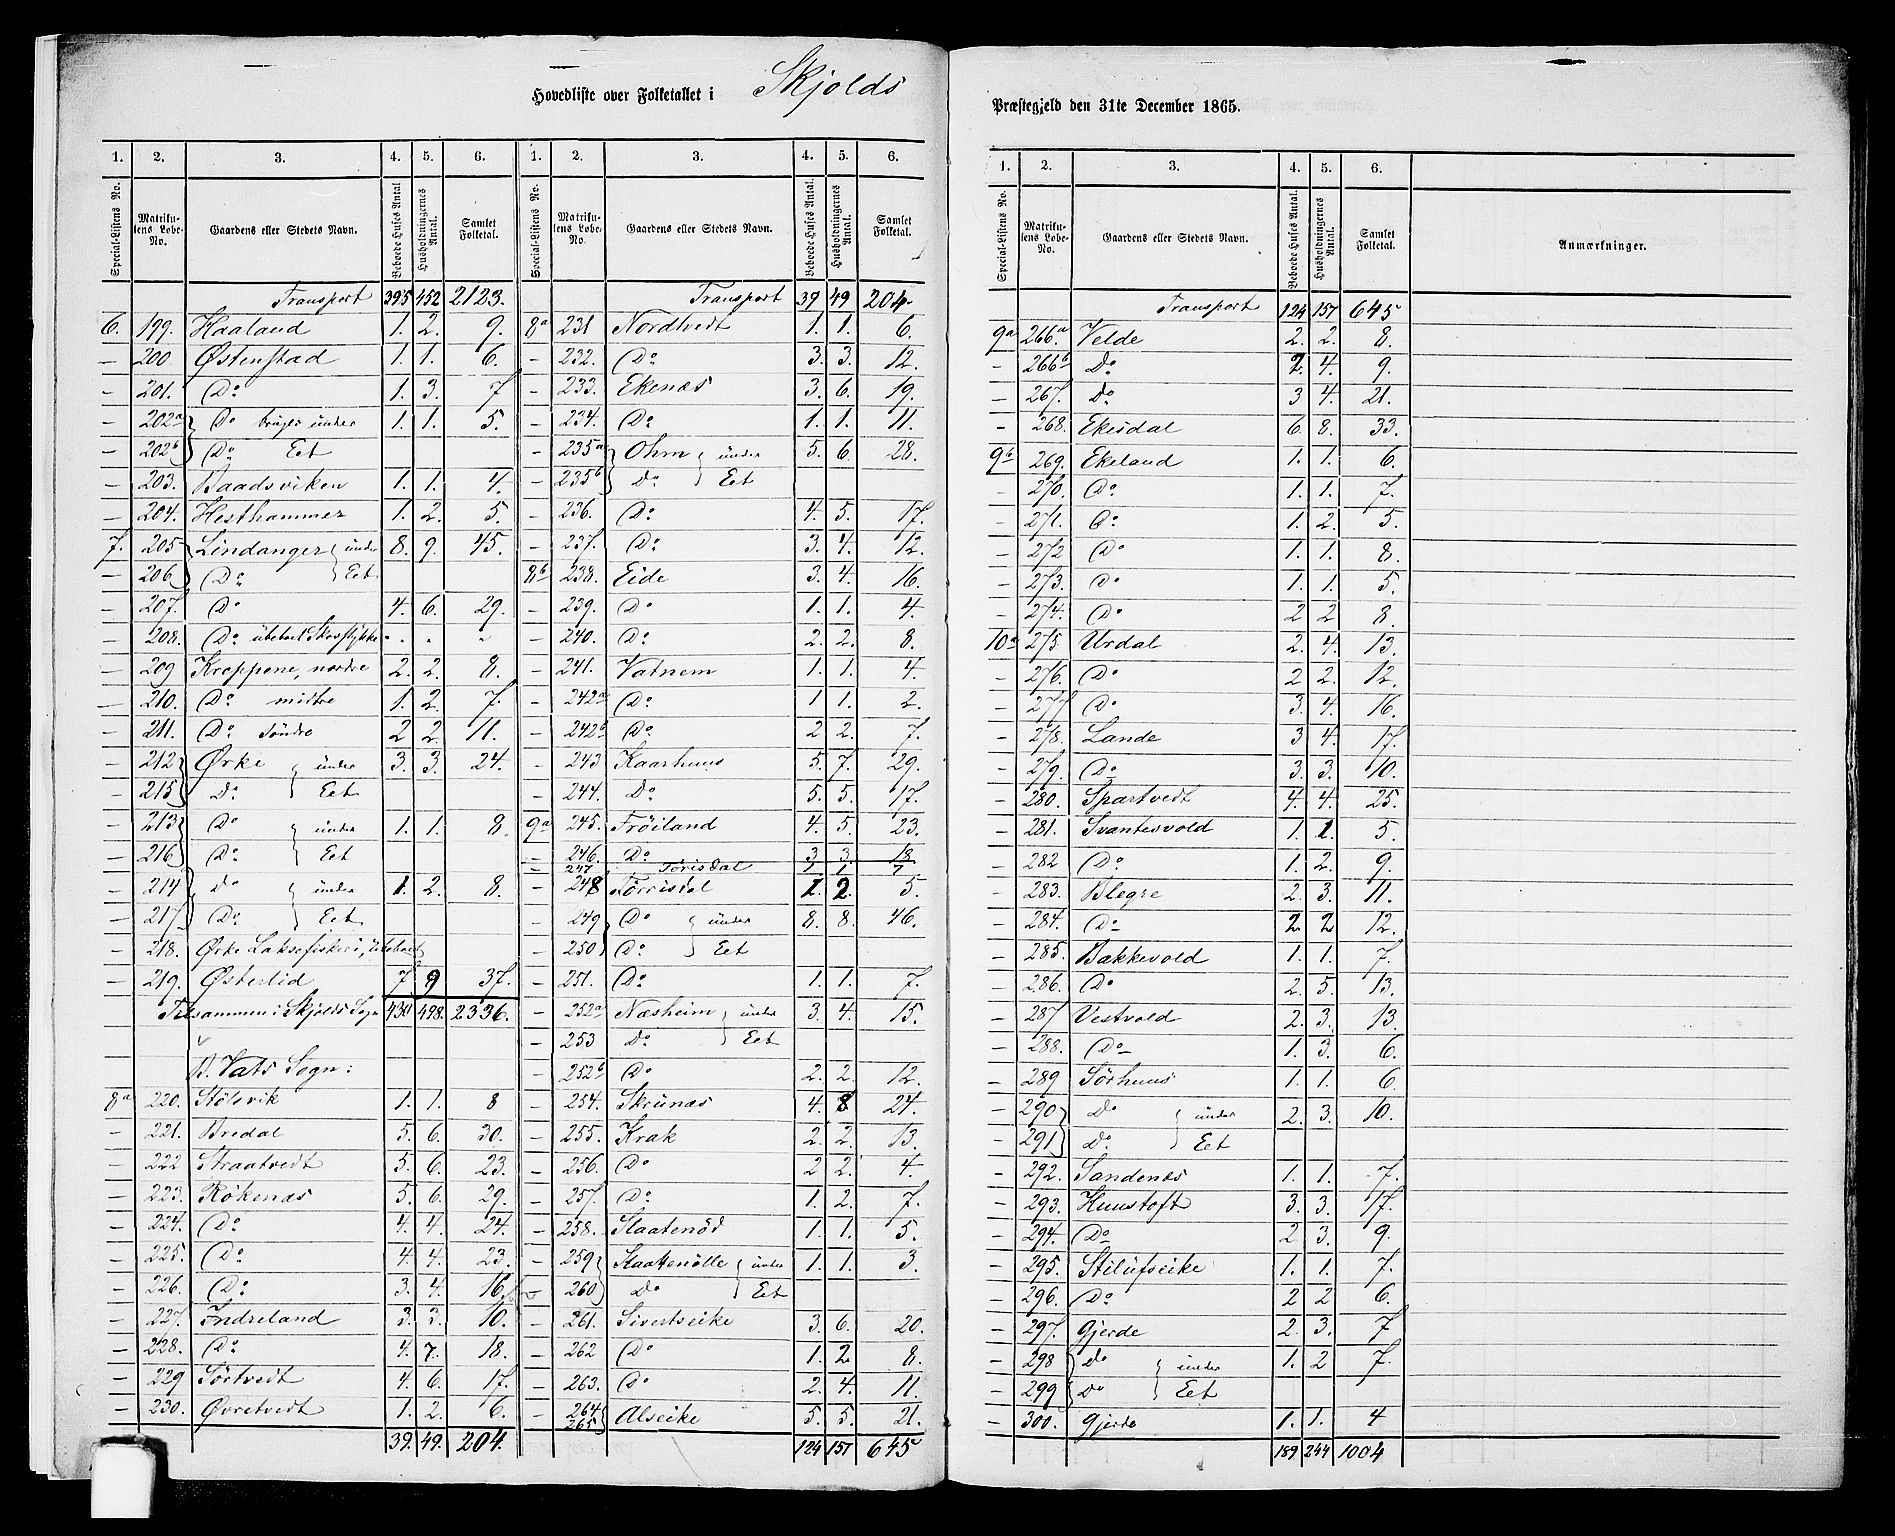 Hovedliste over Folketallet i Skjolds
1. 2. 3. 4. 5. 6. 1. 2. 3. 4. 5. 6.
Special-Listens No. Matrikulens Løbe-No. Gaardens eller Stedets Navn. Beboede Huses Antal Husholdningernes Antal. Samlet Folketal. Special-Listens No. Matrikulens Løbe-No. Gaardens eller Stedets Navn. Beboede Huses Antal. Husholdningernes Antal. Samlet Folketal.
Transport 395 452 2123.
6. 199. Haaland 1. 2. 9.
– 200. Østenstad 1. 1. 6.
– 201. Do 1. 3. 7
– 202a Do bruges under 1. 1. 5.
– 202b Do Eet
– 203. Baadsviken 1. 1. 4.
– 204. Hesthammer 1. 2. 5.
7. 205 Lindanger under 8. 9. 45.
– 206 Do Eet
– 207. Do 4. 6. 29.
– 208. Do ubeboet Skovstykke " " "
– 209 Kroppene, nordre 2. 2. 8.
– 210. Do midtre 1. 2. 7.
– 211. Do søndre 2 2. 11.
– 212 Ørke under 3. 3. 24.
– 215 Do Eet
– 213 Do under 1. 1. 8.
– 216 Do Eet
– 214 Do under 1. 2. 8.
– 217. Do Eet
– 218. Ørke Laxefiskeri, ubeboet
– 219. Østerlid 7 9 37.
Tilsammen i Skjolds Sogn 430 498. 2336.
B. Vats Sogn:
8a 220. Stølsvik 1. 1. 8
– 221. Bredal 5. 6. 30.
– 222 Straatvedt 5. 6. 23.
– 223. Røkenæs 5. 6. 29.
– 224. Do 4. 4. 24
– 225. Do 4. 4. 23.
– 226. Do 3. 4 16
– 227. Indreland 3. 3. 10.
– 228. Do 4. 7. 18.
– 229 Sørtvedt 4. 6. 17.
– 230. Øvretvedt 1. 2. 6.
39. 49. 204.
Transport 39 49 204
8a 231 Nordtvedt 1. 1. 6.
– 232. Do 3. 3. 12.
– 233. Ekenæs 3. 6. 19.
– 234. Do 1. 1. 11.
– 235a Ohm under 5. 6. 28.
– 235b Do Eet
– 236. Do 4. 5. 17.
– 237. Do 3. 4. 12.
8b 238. Eide 3. 4. 16.
– 239. Do 1. 1. 4.
– 240. Do 2. 2. 8.
– 241. Vatnem 1. 1. 4.
– 242a Do 1 1. 2.
– 242b Do 2 2. 7.
– 243 Kaarhuus 5. 7. 29.
– 244. Do 5. 5. 17.
9a 245. Frøiland 4. 5. 23.
– 246. Do 3 3. 18
– 247 Torisdal 1 1 7
– 248 Torrisdal 1. 2. 5.
– 249 Do under 8. 8. 46.
250 Do Eet
– 251. Do 1. 1. 7.
– 252a Næsheim under 3. 4. 15.
– 253 Do Eet
– 252b Do 2. 2. 12.
– 254. Skrunæs 4. 8 24.
– 255. Krak 2. 2. 13.
– 256. Do 2 2. 4.
– 257. Do 1. 2. 7.
– 258. Slaatenød 1. 1. 5.
– 259 under 1. 1. 3.
260 Do Eet
– 261. Sivertseike 3. 6. 20.
– 262 Do 1. 2 8.
– 263. Do 2. 4. 11.
– 264 265 Alseike 5. 5. 21.
124 157 645
Præstegjeld den 31te December 1865.
1. 2. 3. 4. 5. 6.
Special-Listens No. Matrikulens Løbe-No. Gaardens eller Stedets Navn. Beboede Huses Antal. Husholdningernes Antal. Samlet Folketal. Anmærkninger.
Transport 124 157 645
9a 266a Velde 2. 2. 8.
– 266b Do 2. 4. 9.
– 267. Do 3 4. 21.
– 268. Ekesdal 6 8. 33.
9b 269. Ekeland 1. 1. 6.
– 270. Do 1. 1. 7.
– 271. Do 1. 2. 5.
– 272 Do 1. 1. 8.
– 273. Do 1. 1. 5.
– 274. Do 2 2 8.
10a 275 Urdal 2. 4. 13.
– 276. Do 2 2. 12.
– 277 Do 3. 4. 16.
– 278. Lande 3 4. 17.
– 279. Do 3. 3. 10.
– 280. Spartvedt 4. 4. 25.
– 281. Svantesvold 1. 1. 5.
– 282 Do 1. 2. 9.
– 283. Blegre 2. 3. 11.
– 284. Do 2 2 12.
– 285. Bakkevold 1. 1. 7.
– 286. Do 2. 5. 13.
– 287 Vestvold 2. 3. 13.
– 288. Do 1. 3. 6.
– 289 Sørhuus 1. 1. 6.
– 290 Do under 2. 3. 10.
– 291 Do Eet
– 292. Sandenæs 1. 1. 7.
– 293. Hunstoft 3. 3. 17.
– 294. Do 2 3. 9.
– 295. Stilufseike 1. 1. 7.
– 296. Do 2 2 6.
– 297. Gjerde 2. 3. 7
– 298 Do under 1. 2 7.
– 299 Do Eet
– 300. Gjerde 1. 1. 4
189 244 1004